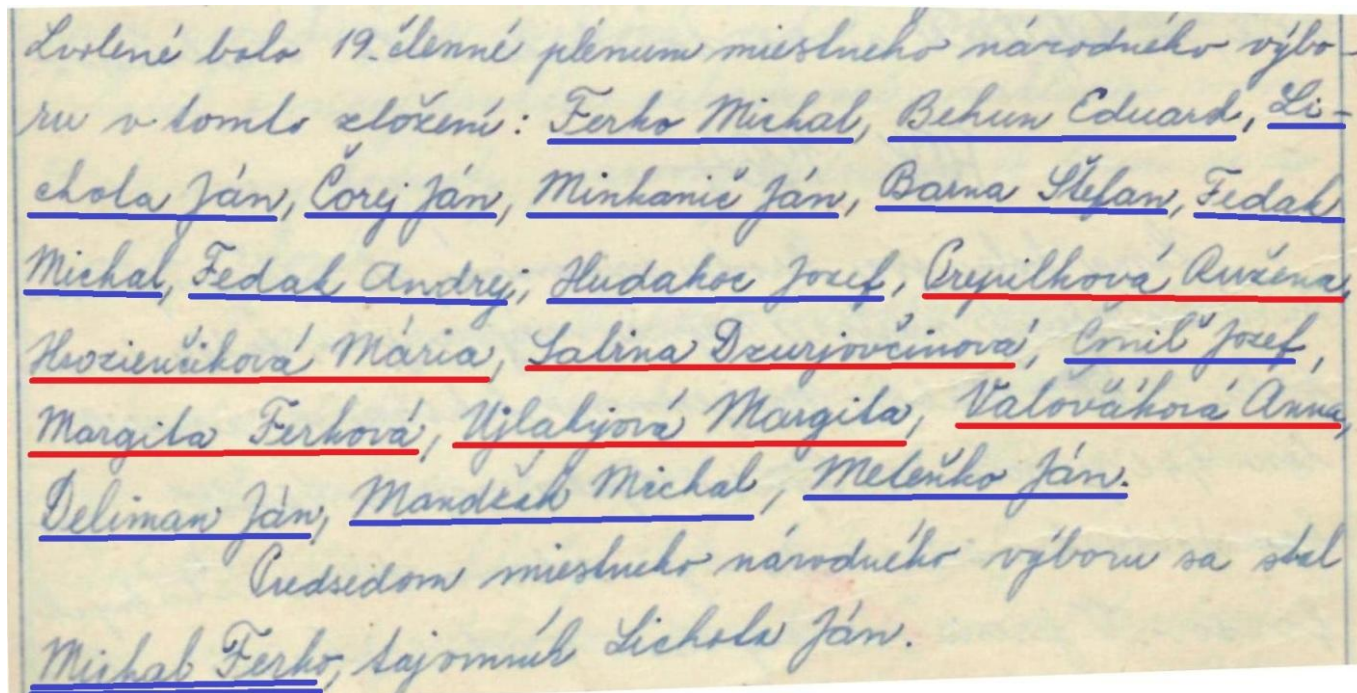 Zvolené bolo 19. členné plénum miestneho národného výbo-
ru v tomto zložení: Ferko Michal, Behun Eduard, Li-
chola Ján, Čorej Ján, Minkanič Ján, Barna Štefan, Fedak
Michal, Fedak Andrej, Hudakoc Jozef, Prepilková Ružena,
Hvozienčiková Mária, Salina Dzurjovčinová, Čmil Jozef,
Margita Ferková, Ujlakyová Margita, Valováková Anna,
Deliman Ján, Mandzák Michal, Meteňko Ján.
Predsedom miestneho národného výboru sa stal
Michal Ferko, tajomník Lichola Ján.